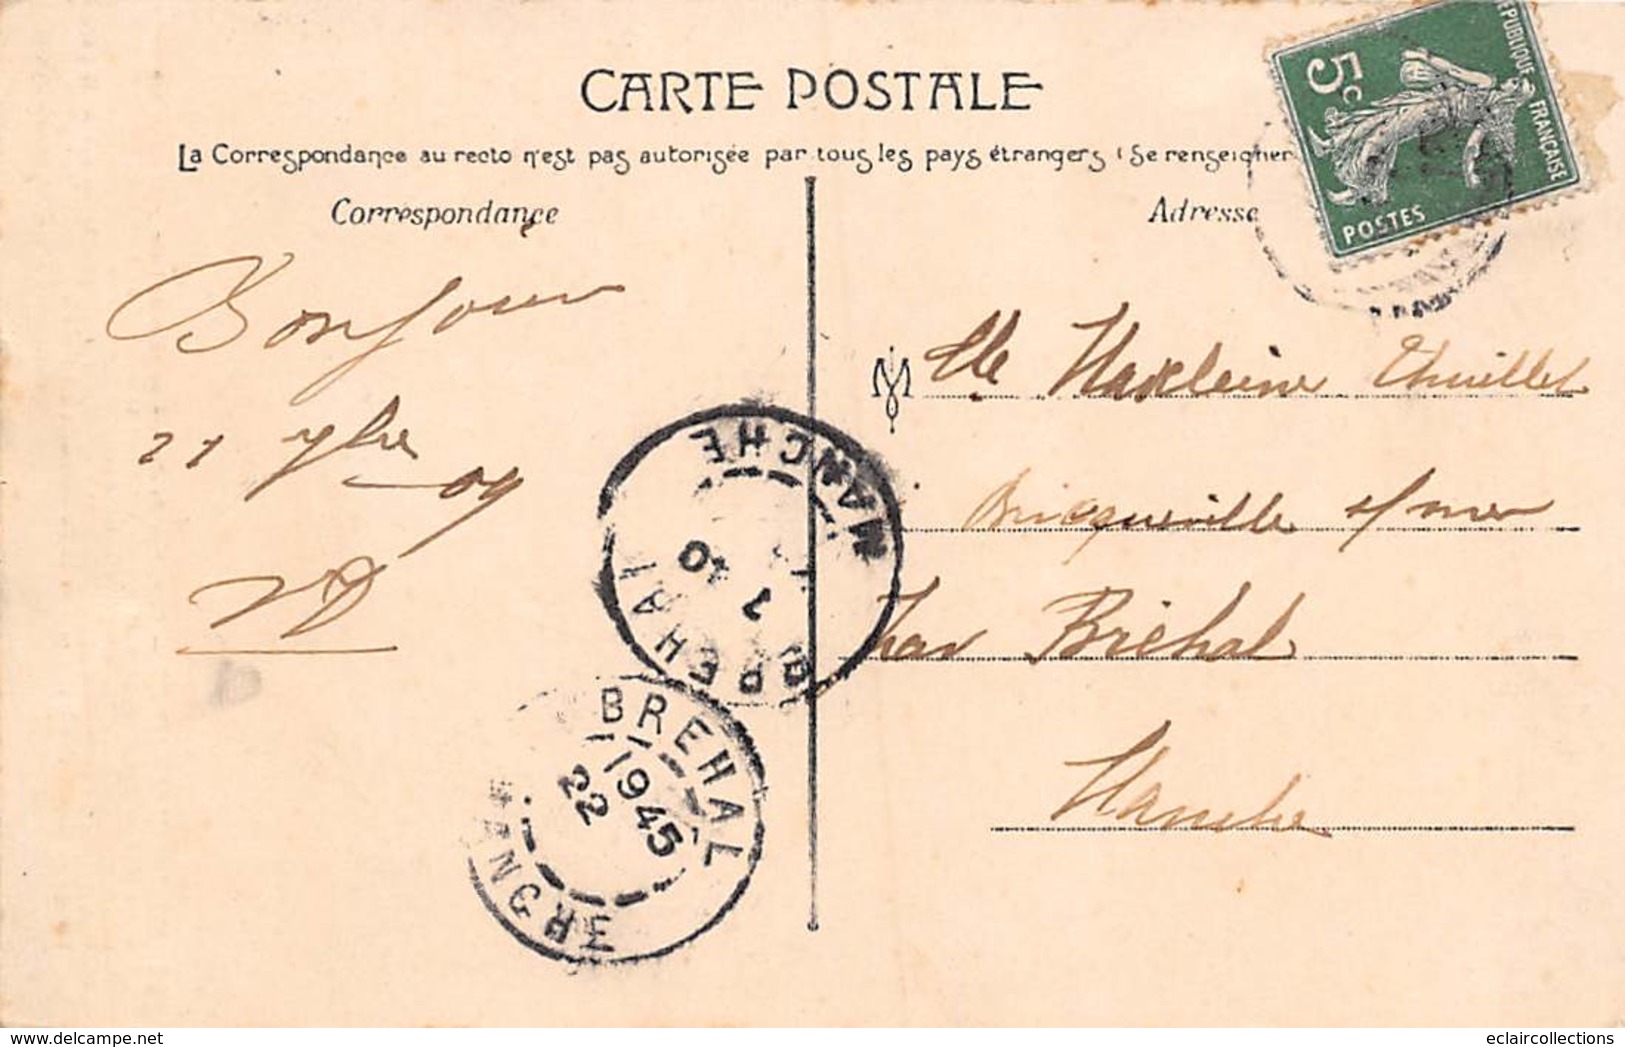 CARTE POSTALE
La Correspondance au recto n'est pas autorisée par tous les pays étrangers (Se renseigner
Correspondance
Adresse
RÉPUBLIQUE FRANÇAISE
5c
POSTES
Bonjour
21 7bre 09
VD
Mlle Madeleine Thuillet
Bricqueville s/mer
par Bréhal
Manche
BREHAL
MANCHE
BREHAL
1945
22
MANCHE
eclaircollections
www.delcampe.net